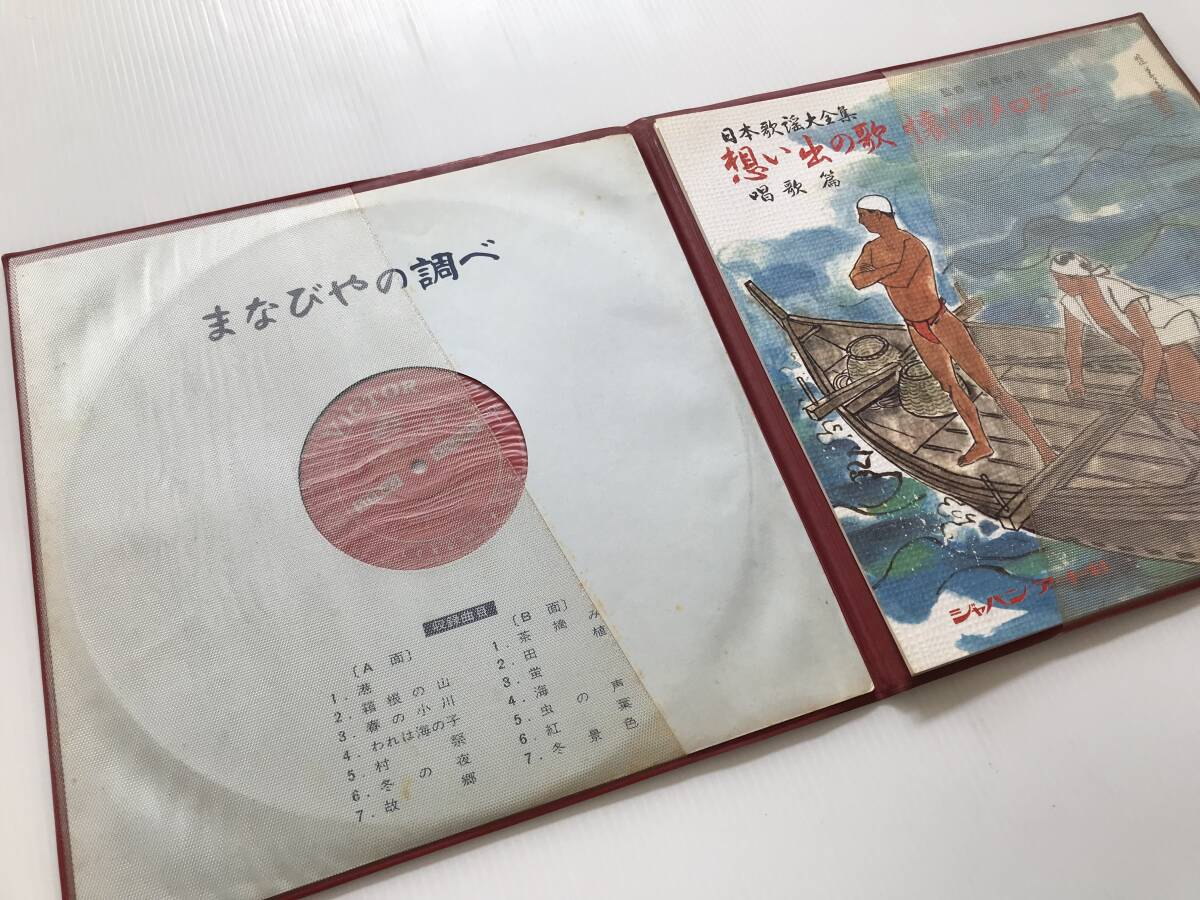 まなびやの調べ
VICTOR
収録曲目
〔A 面〕
1. 港
2. 箱根の山
3. 春の小川
4. われは海の子
5. 村祭
6. 冬の夜
7. 故郷
〔B 面〕
1. 茶摘み
2. 田植
3. 蛍
4. 海
5. 虫の声
6. 紅葉
7. 冬景色
日本歌謡大全集
想い出の歌
唱歌篇
懐しのメロデー
監修
ジャパンアート社